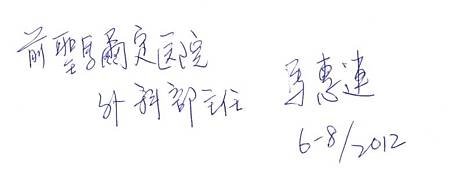 前聖馬爾定医院
外科部主任 馬惠連
6-8/2012